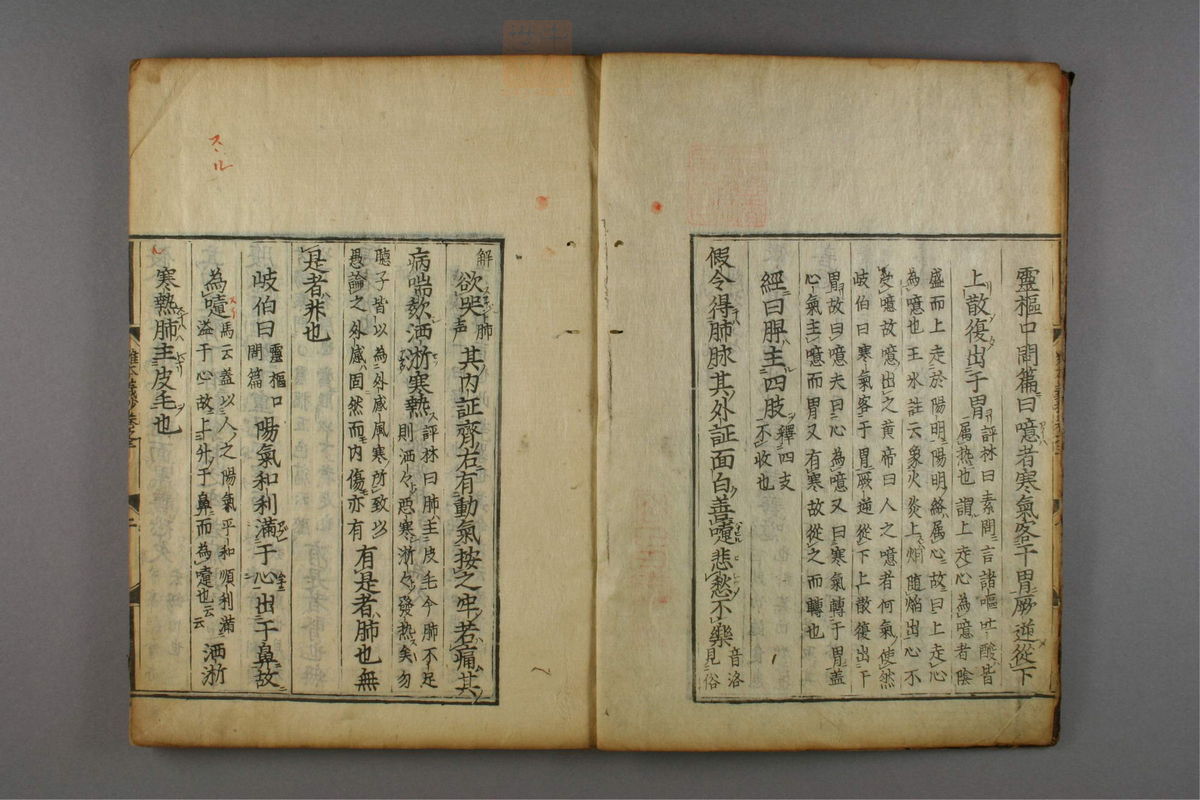 靈樞口問篇曰噫者寒氣客于胃厥逆從下
上散復出于胃評林曰素問言諸嘔吐酸皆
属热也謂上走心為噫者陰
盛而上走於陽明陽明絡属心故曰上走心
為噫也王氷註云象火炎上烟随焔出心不
受噫故噫出之黄帝曰人之噫者何氣使然
岐伯曰寒氣客于胃厥逆從下上散復出于
胃故曰噫夫曰心為噫又曰寒氣轉于胃蓋
心氣主噫而胃又有寒故從之而轉也
經曰脾主四肢釋四支
不收也
假令得肺脉其外証面白善嚔悲愁不樂音洛
見俗
解
欲哭肺
声其内証齊右有動氣按之牢若痛其
病喘欬洒淅寒熱評林曰肺主皮毛今肺不足
則洒々悪寒淅々發热矣勿
聴子皆以為外感風寒所致以
愚論之外感固然而内傷亦有有是者肺也無
是者非也
岐伯曰靈樞口
問篇陽氣和利滿于心出于鼻故
為嚔馬云蓋以人之陽氣平和順利滿
溢于心故上升于鼻而為嚔也云云洒淅
寒熱肺主皮毛也
スル